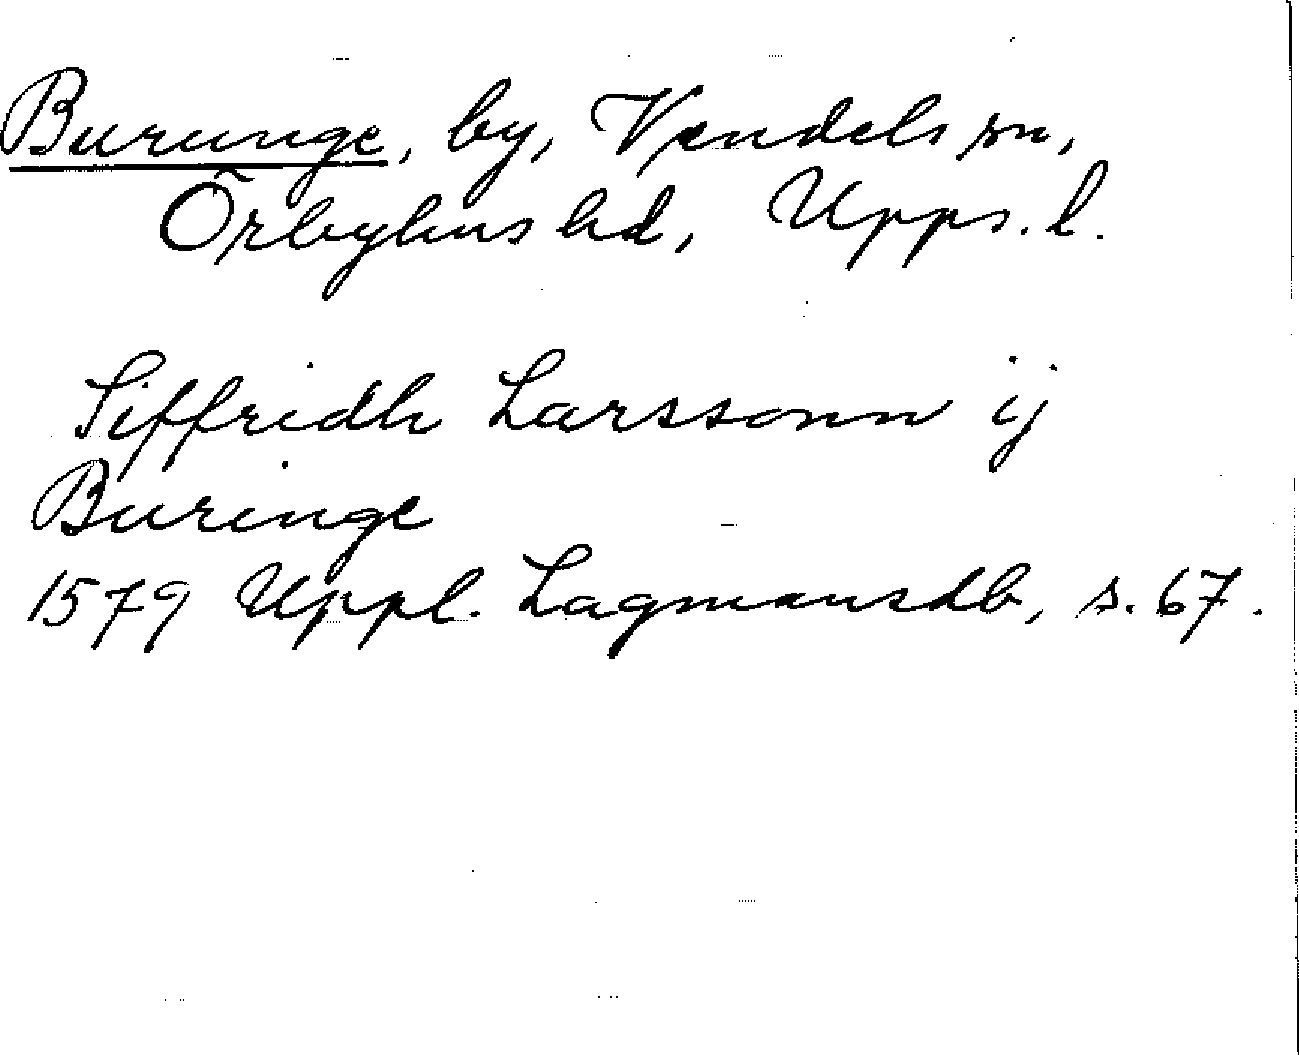 Burunge, by, Vendels sn,
Örbyhus hd, Upps. l.
Siffridh Larssonn ij
Buringe
1579 Uppl. Lagmansdb, s. 67.